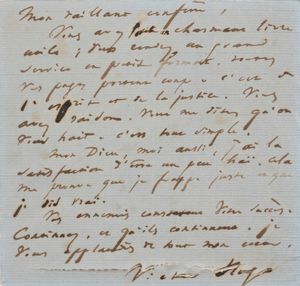 Mon vaillant confrère,
Vous avez fait un charmant livre
utile ; vous rendez un grand
service en petit format. toutes
vos pages portent coup. c'est de
l'esprit et de la justice. Vous
avez raison. Vous me dites qu'on
vous hait. c'est tout simple.
Mon Dieu, moi aussi j'ai la
satisfaction d'être un peu haï. cela
me prouve que je frappe juste et que
je dis vrai.
Vos ennemis constatent votre succès.
Continuez, et qu'ils continuent. je
vous applaudis de tout mon cœur.
Victor Hugo